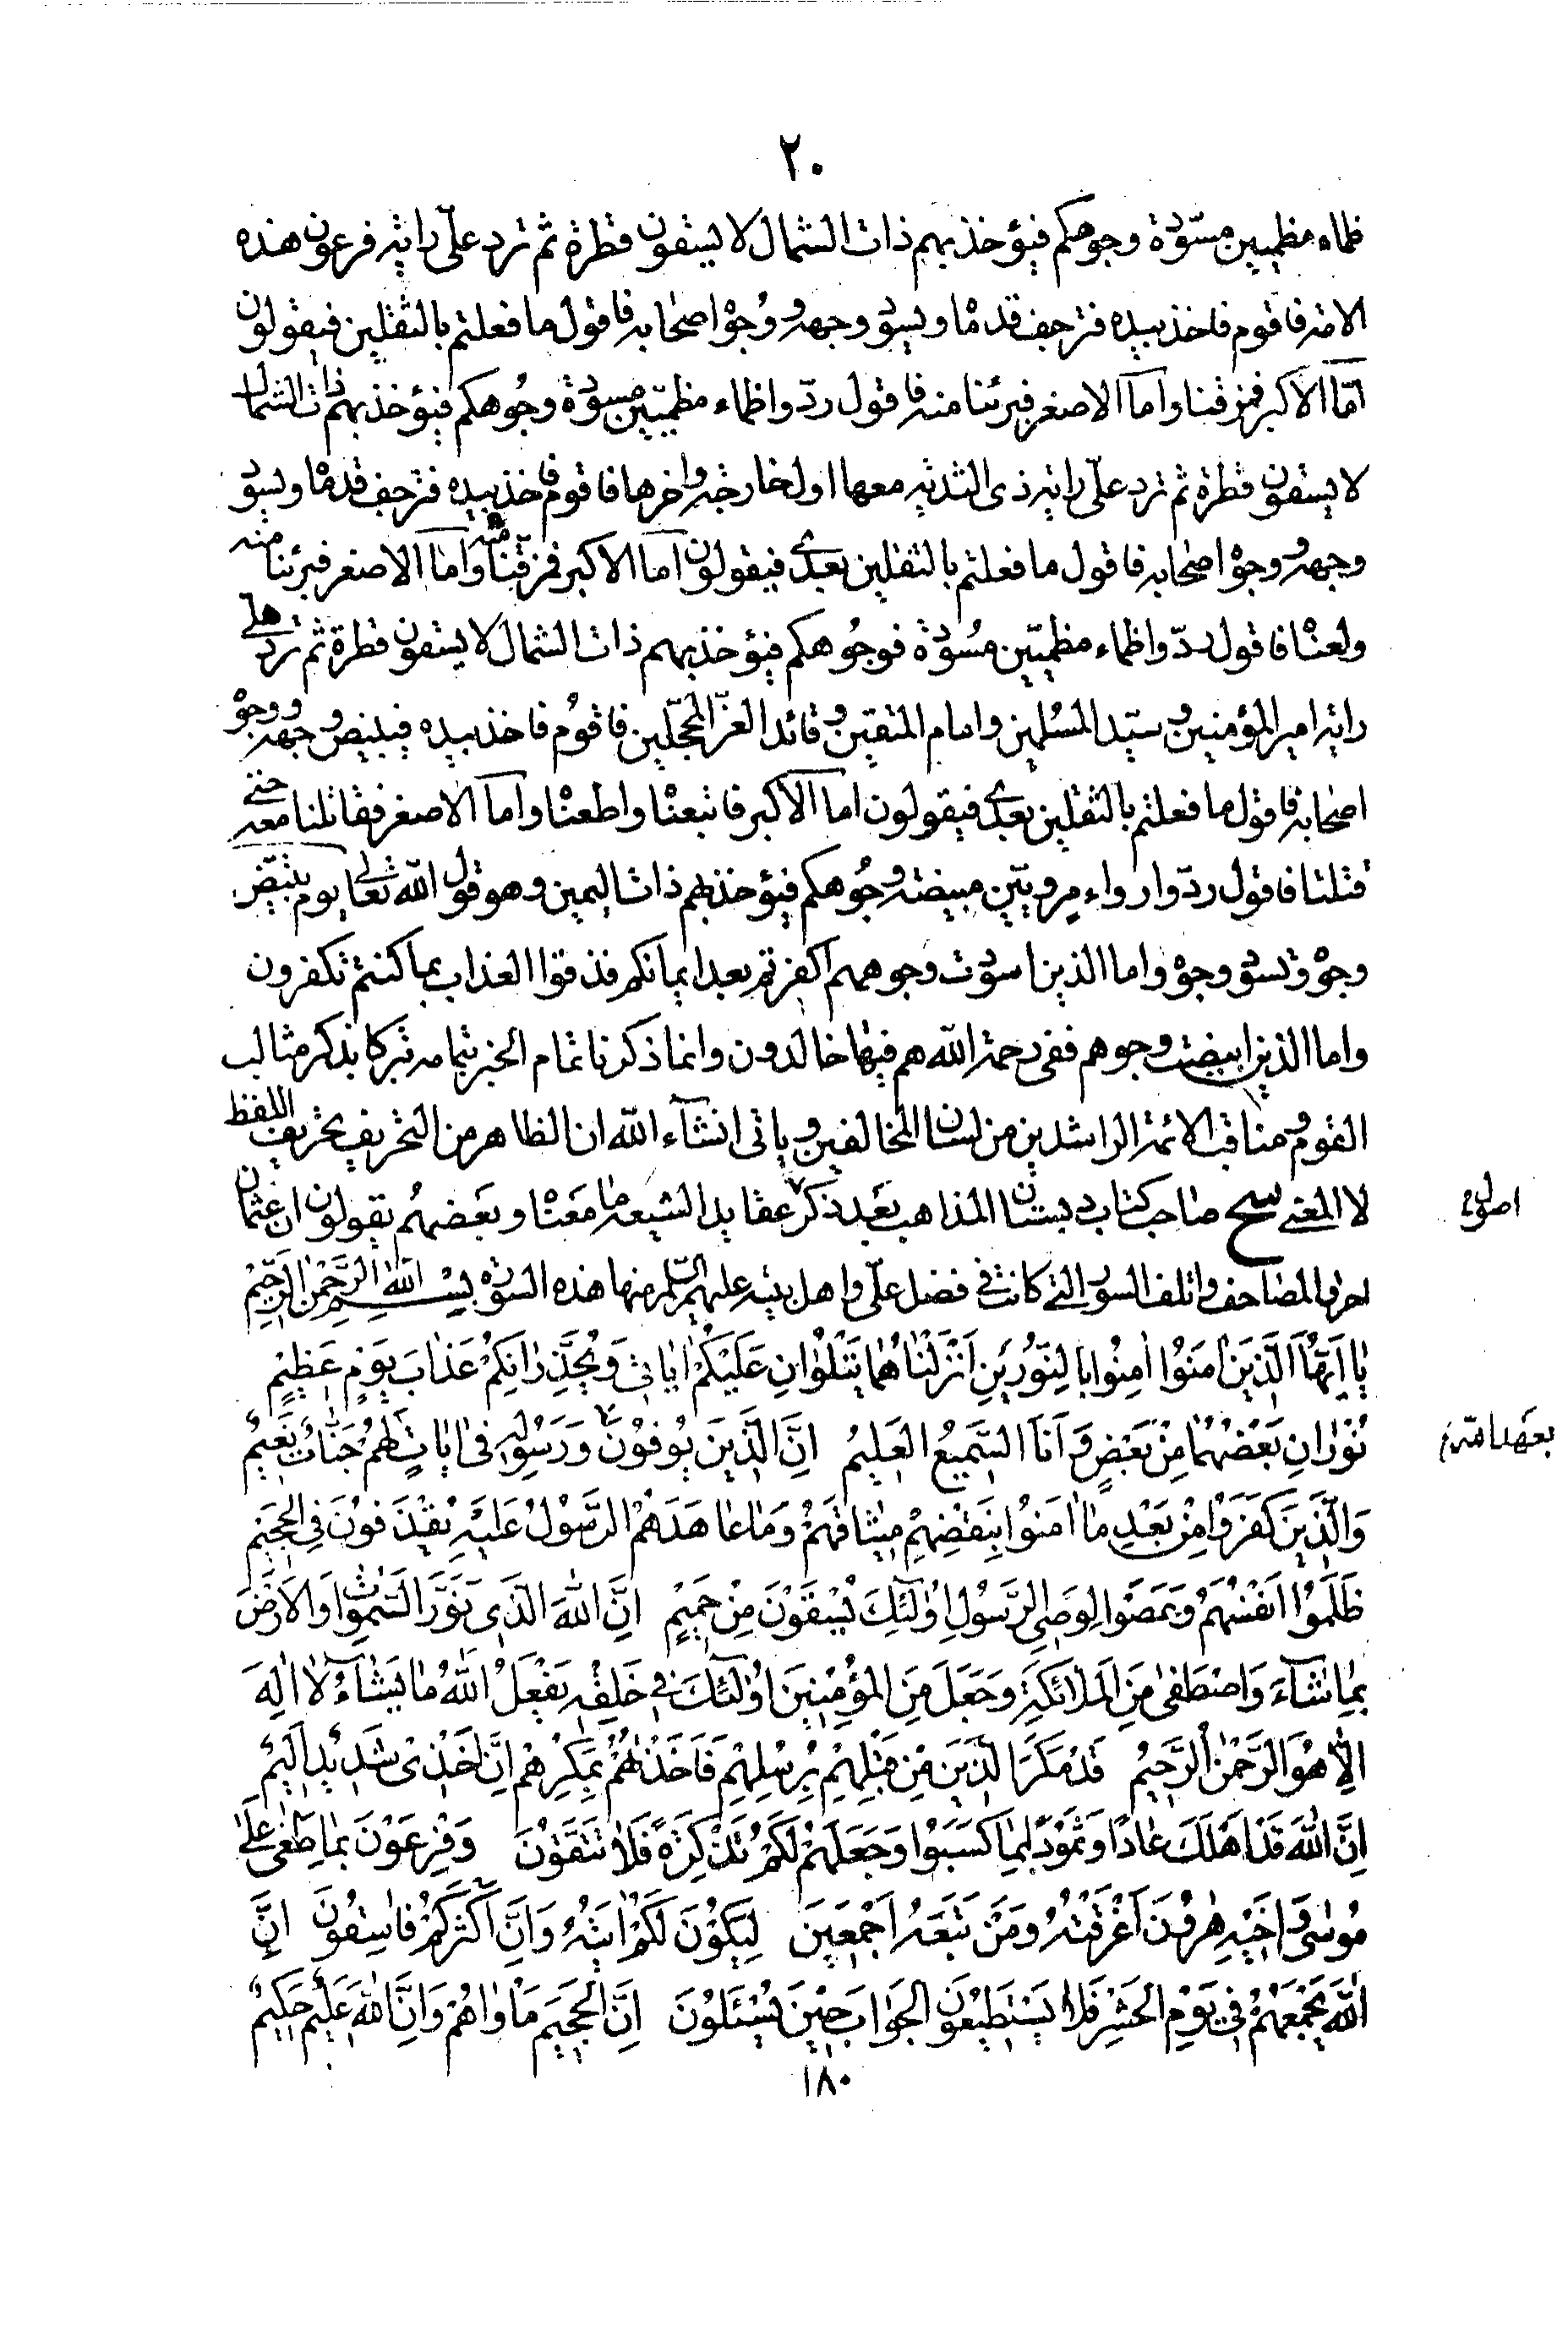 ٢٠
ظماء مظمئين مسودّة وجوهكم فيؤخذ بهم ذات الشمال لا يسقون قطرة ثم ترد علىّ راية فرعون هذه
الامة فاقوم فاخذ بيده فترجف قدماه ويسود وجهه و وجوه اصحابه فاقول ما فعلتم بالثقلين فيقولون
امّا الاكبر فمزقنا واما الاصغر فبرئنا منه فاقول ردّوا ظماء مظمئين مسودة وجوهكم فيؤخذ بهم ذات الشمال
لا يسقون قطرة ثم ترد علىّ راية ذى الثدية معها اول خارجة واخرها فاقوم فاخذ بيده فترجف قدماه ويسود
وجهه و وجوه اصحابه فاقول ما فعلتم بالثقلين بعدى فيقولون اما الاكبر فمزقنا منه واما الاصغر فبرئنا منه
ولعناه فاقول ردّوا ظماء مظمئين مسودة فوجوهكم فيؤخذ بهم ذات الشمال لا يسقون قطرة ثم ترد على
راية امير المؤمنين و سيّد المسلمين و امام المتقين و قائد الغرّ المحجّلين فاقوم فاخذ بيده فيبيض وجهه و وجوه
اصحابه فاقول ما فعلتم بالثقلين بعدى فيقولون اما الاكبر فاتبعناه واطعناه واما الاصغر فقاتلنا معه حتى
قتلنا فاقول ردّوا رواء مرويّين مبيضة وجوهكم فيؤخذ بهم ذات اليمين وهو قول الله تعالى يوم تبيضّ
وجوه وتسود وجوه واما الذين اسودت وجوههم اكفرتم بعد ايمانكم فذوقوا العذاب بما كنتم تكفرون
واما الذين ابيضت وجوههم ففى رحمة الله هم فيها خالدون وانما ذكرنا تمام الخبر بتمامه تبركا بذكر مثالب
القوم و مناقب الائمة الراشدين من لسان المخالفين و ياتى انشآء الله ان الظاهر من التحريف تحريف اللفظ
لا المعنى سح صاحب كتاب دبستان المذاهب بعد ذكر عقايد الشيعة ما معناه وبعضهم يقولون ان عثمان
احرق المصاحف واتلف السور التى كانت فى فضل علىّ واهل بيته عليهم السّلم منها هذه السورة بِسْمِ اللهِ الرَّحْمٰنِ الرَّحِيْمِ
يٰا اَيُّهَا الَّذِيْنَ اٰمَنُوا اٰمِنُوا بِالنُّوْرَيْنِ اَنْزَلْنٰاهُمٰا يَتْلُوٰانِ عَلَيْكُمْ اٰيٰاتِى وَيُحَذِّرٰانِكُمْ عَذٰابَ يَوْمٍ عَظِيْمٍ
نُوْرٰانِ بَعْضُهُمٰا مِنْ بَعْضٍ وَ اَنَا السَّمِيْعُ الْعَلِيْمُ اِنَّ الَّذِيْنَ يُوْفُوْنَ وَرَسُوْلِهِ فِى اٰيٰاتٍ لَهُمْ جَنّٰاتُ نَعِيْمٍ
وَالَّذِيْنَ كَفَرُوْا مِنْ بَعْدِ مٰا اٰمَنُوا بِنَقْضِهِمْ مِيْثٰاقَهُمْ وَمٰا عٰاهَدَهُمُ الرَّسُوْلُ عَلَيْهِ يُقْذَفُوْنَ فِى الْجَحِيْمِ
ظَلَمُوْا اَنْفُسَهُمْ وَعَصَوْا لِوَصِىِّ الرَّسُوْلِ اُوْلٰئِكَ يُسْقَوْنَ مِنْ حَمِيْمٍ اِنَّ اللهَ الَّذِى نَوَّرَ السَّمٰوٰاتِ وَالْاَرْضَ
بِمٰا شٰآءَ وَاصْطَفٰى مِنَ الْمَلٰائِكَةِ وَجَعَلَ مِنَ الْمُؤْمِنِيْنَ اُوْلٰئِكَ فِى خَلْقِهِ يَفْعَلُ اللهُ مٰا يَشٰآءُ لٰا اِلٰهَ
اِلّٰا هُوَ الرَّحْمٰنُ الرَّحِيْمُ قَدْ مَكَرَ الَّذِيْنَ مِنْ قَبْلِهِمْ بِرُسُلِهِمْ فَاَخَذْتُهُمْ بِمَكْرِهِمْ اِنَّ اَخْذِى شَدِيْدٌ اَلِيْمٌ
اِنَّ اللهَ قَدْ اَهْلَكَ عٰادًا وَثَمُوْدَ بِمٰا كَسَبُوْا وَجَعَلَهُمْ لَكُمْ تَذْكِرَةً فَلٰا تَتَّقُوْنَ وَفِرْعَوْنَ بِمٰا طَغٰى عَلٰى
مُوسٰى وَ اَخِيْهِ هٰرُوْنَ اَغْرَقْتُهُ وَمَنْ تَبِعَهُ اَجْمَعِيْنَ لِيَكُوْنَ لَكُمْ اٰيَتُهُ وَاِنَّ اَكْثَرَكُمْ فٰاسِقُوْنَ اِنَّ
اللهَ يَجْمَعُهُمْ فِى يَوْمِ الْحَشْرِ فَلٰا يَسْتَطِيْعُوْنَ الْجَوٰابَ حِيْنَ يُسْئَلُوْنَ اِنَّ الْجَحِيْمَ مَأْوٰاهُمْ وَاِنَّ اللهَ عَلِيْمٌ حَكِيْمٌ
١٨٠